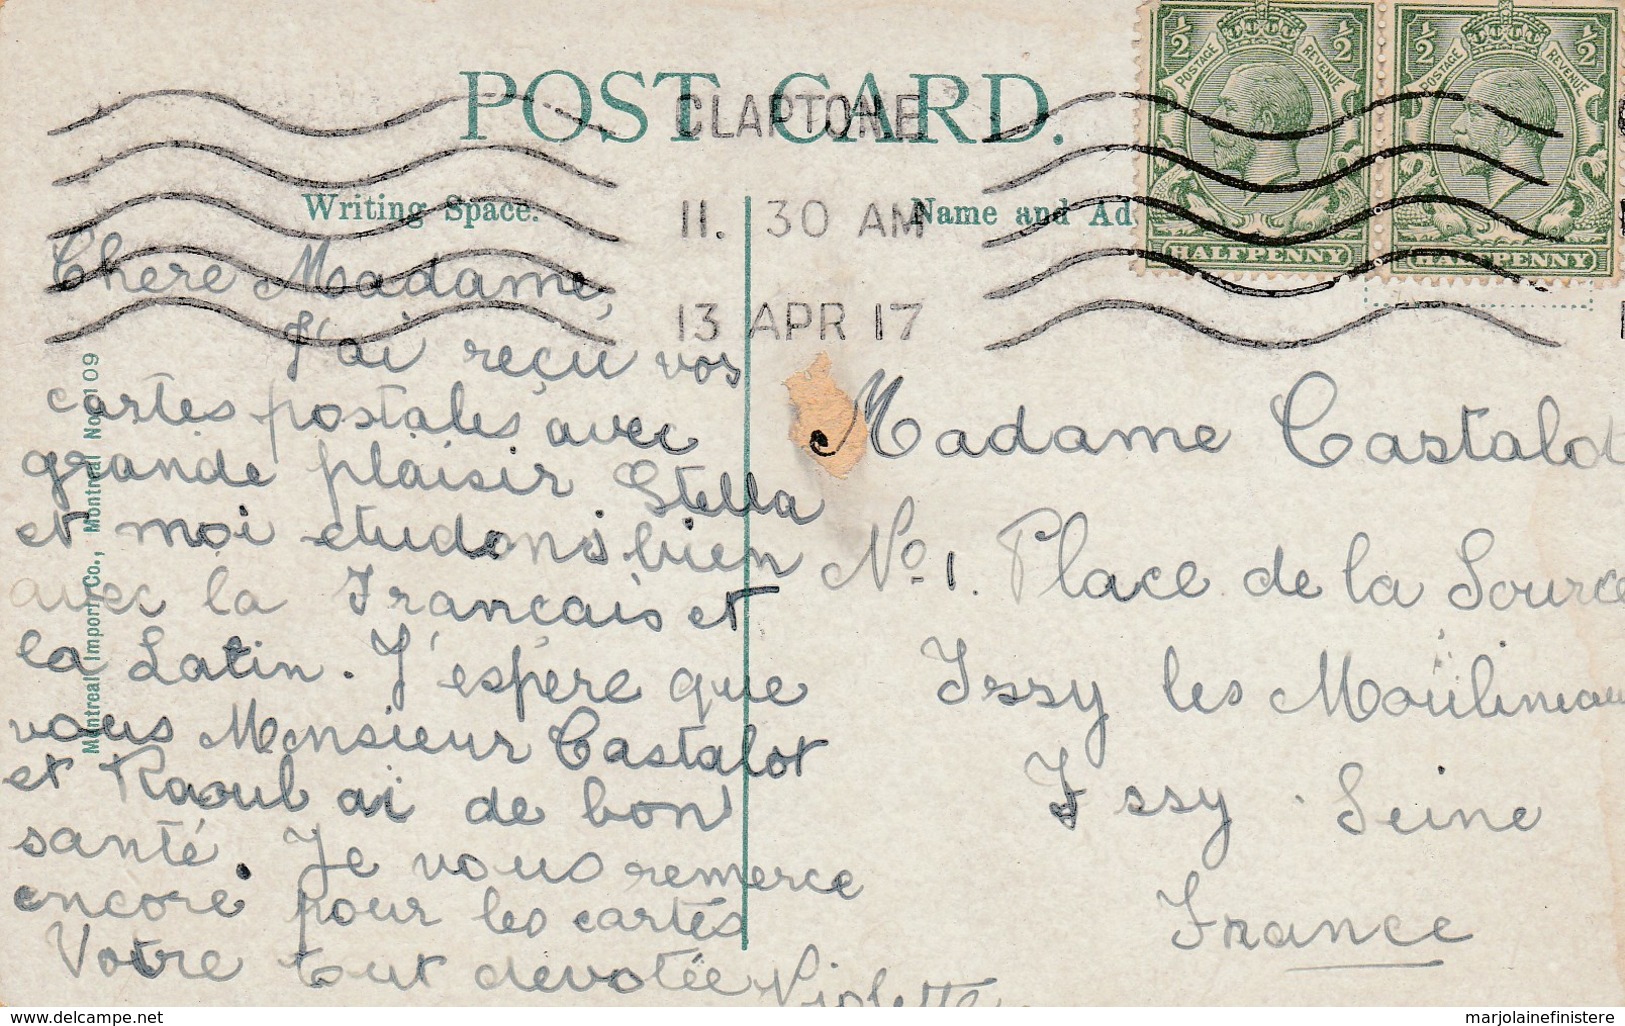 POST CARD.
CLAPTON E
11. 30 AM
13 APR 17
½ ½
POSTAGE REVENUE
HALFPENNY
½ ½
POSTAGE REVENUE
HALFPENNY
Writing Space.
Name and Ad
Chere Madame,
J'ai reçu vos
cartes postales avec
grande plaisir Stella
et moi etudons bien
avec la Francais et
la Latin. J'espère que
vous Monsieur Castalot
et Raoul ai de bon
santé. Je vous remerce
encore pour les cartes
Votre tout devotée Violette
Montreal Import Co., Montreal No. 109
Madame Castalot
No. 1. Place de la Source
Issy les Moulineau
Issy Seine
France
www.delcampe.net
marjolainefinistere